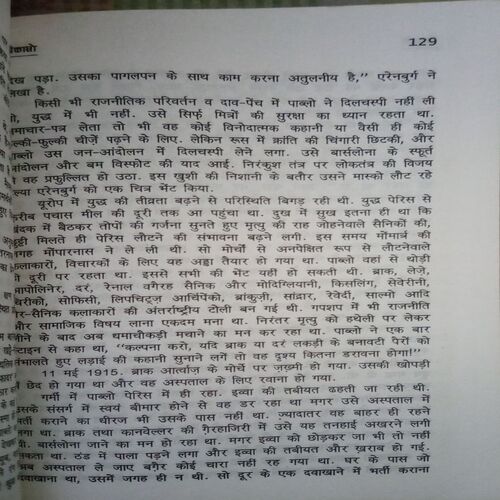 पिकासो
129
देख पड़ा. उसका पागलपन के साथ काम करना अतुलनीय है,” एरेनबुर्ग ने
लिखा है.
किसी भी राजनीतिक परिवर्तन व दाव-पेंच में पाब्लो ने दिलचस्पी नहीं ली
थी, युद्ध में भी नहीं. उसे सिर्फ़ मित्रों की सुरक्षा का ध्यान रहता था.
समाचार-पत्र लेता तो भी वह कोई विनोदात्मक कहानी या वैसी ही कोई
हल्की-फुल्की चीज़ें पढ़ने के लिए. लेकिन रूस में क्रांति की चिंगारी छिटकी, और
पाब्लो उस जन-आंदोलन में दिलचस्पी लेने लगा. उसे बार्सलोना के स्फूर्त
आंदोलन और बम विस्फोट की याद आई. निरंकुश तंत्र पर लोकतंत्र की विजय
से वह प्रफुल्लित हो उठा. इस खुशी की निशानी के बतौर उसने मास्को लौट रहे
इल्या एरेनबुर्ग को एक चित्र भेंट किया.
यूरोप में युद्ध की तीव्रता बढ़ने से परिस्थिति बिगड़ रही थी. युद्ध पेरिस से
क़रीब पचास मील की दूरी तक आ पहुंचा था. दुख में सुख इतना ही था कि
खंदक में बैठकर तोपों की गर्जना सुनते हुए मृत्यु की राह जोहनेवाले सैनिकों की,
छुट्टी मिलते ही पेरिस लौटने की संभावना बढ़ने लगी. इस समय मोंमार्त्र की
जगह मोंपारनास ने ले ली थी. सो मोर्चों से अनपेक्षित रूप से लौटनेवाले
कलाकारों, विचारकों के लिए यह अड्डा तैयार हो गया था. पाब्लो वहां से थोड़ी
ही दूरी पर रहता था. इससे सभी की भेंट यहीं हो सकती थी. ब्राक, लेज़े,
आपोलिनेर, दरं, रेनाल वगैरह सैनिक और मोदिग्लियानी, किसलिंग, सेवेरीनी,
चिरीको, सोफिसी, लिपचिट्ज़ आर्चिपेंको, ब्रांकुज़ी, सांद्रार, रेवेर्दी, साल्मो आदि
गैर-सैनिक कलाकारों की अंतर्राष्ट्रीय टोली बन गई थी. गपशप में भी राजनीति
और सामाजिक विषय लाना एकदम मना था. निरंतर मृत्यु को हथेली पर लेकर
जीने के बाद अब धमाचौकड़ी मचाने का मन कर रहा था. पाब्लो ने एक बार
स्टाइन से कहा था, “कल्पना करो, यदि ब्राक या दरं लकड़ी के बनावटी पैरों को
संभालते हुए लड़ाई की कहानी सुनाने लगें तो वह दृश्य कितना डरावना होगा!”
11 मई 1915. ब्राक आर्त्वाज़ के मोर्चे पर ज़ख्मी हो गया. उसकी खोपड़ी
में छेद हो गया था और वह अस्पताल के लिए रवाना हो गया.
गर्मी में पाब्लो पेरिस में ही रहा. इव्वा की तबीयत ढहती जा रही थी.
उसके संसर्ग में स्वयं बीमार होने से वह डर रहा था मगर उसे अस्पताल में
भर्ती कराने का धीरज भी उसके पास नहीं था. ज़्यादातर वह बाहर ही रहने
लगा था. ब्राक तथा कानवेल्लर की ग़ैरहाजिरी में उसे यह तनहाई अखरने लगी
थी. बार्सलोना जाने का मन हो रहा था. मगर इव्वा को छोड़कर जा भी तो नहीं
सकता था. ठंड में पाला पड़ने लगा और इव्वा की तबीयत और ख़राब हो गई.
अब अस्पताल ले जाए बग़ैर कोई चारा नहीं रह गया था. घर के पास जो
दवाखाना था, उसमें जगह ही न थी. सो दूर के एक दवाखाने में भर्ती कराना